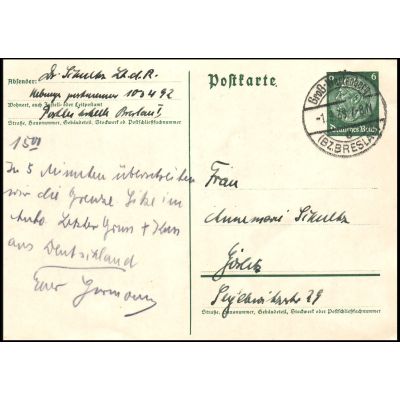 Absender: Dr. Schultz Lt. d. R.
Wohnort, auch Zustell- oder Leitpostamt
Breslau I
Straße, Hausnummer, Gebäudeteil, Stockwerk od. Postschließfachnummer
15 00
In 5 Minuten überschreiten
wir die Grenze. Sitze im
Auto. Letzter Gruss + Kuss
aus Deutschland
Euer Hermann
Postkarte
6
Deutsches Reich
(BZ. BRESLAU)
Frau
Annemarie Schultz
Görlitz
29
Straße, Hausnummer, Gebäudeteil, Stockwerk oder Postschließfachnummer